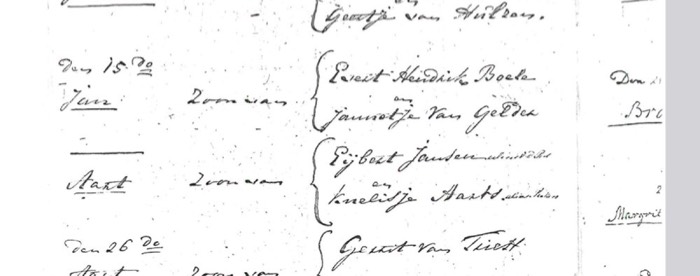 Geertje van Hulzen.
den 15 do
Jan
Zoon van
Evert Hendrik Boele
en
Jannetje Van Gelder
Aart
Zoon van
Eijbert Jansen
en
Knelisje Aarts
den 26 do
Gerrit van Triest
Aart
Zoon van
Den
Bro
Margrit
Den